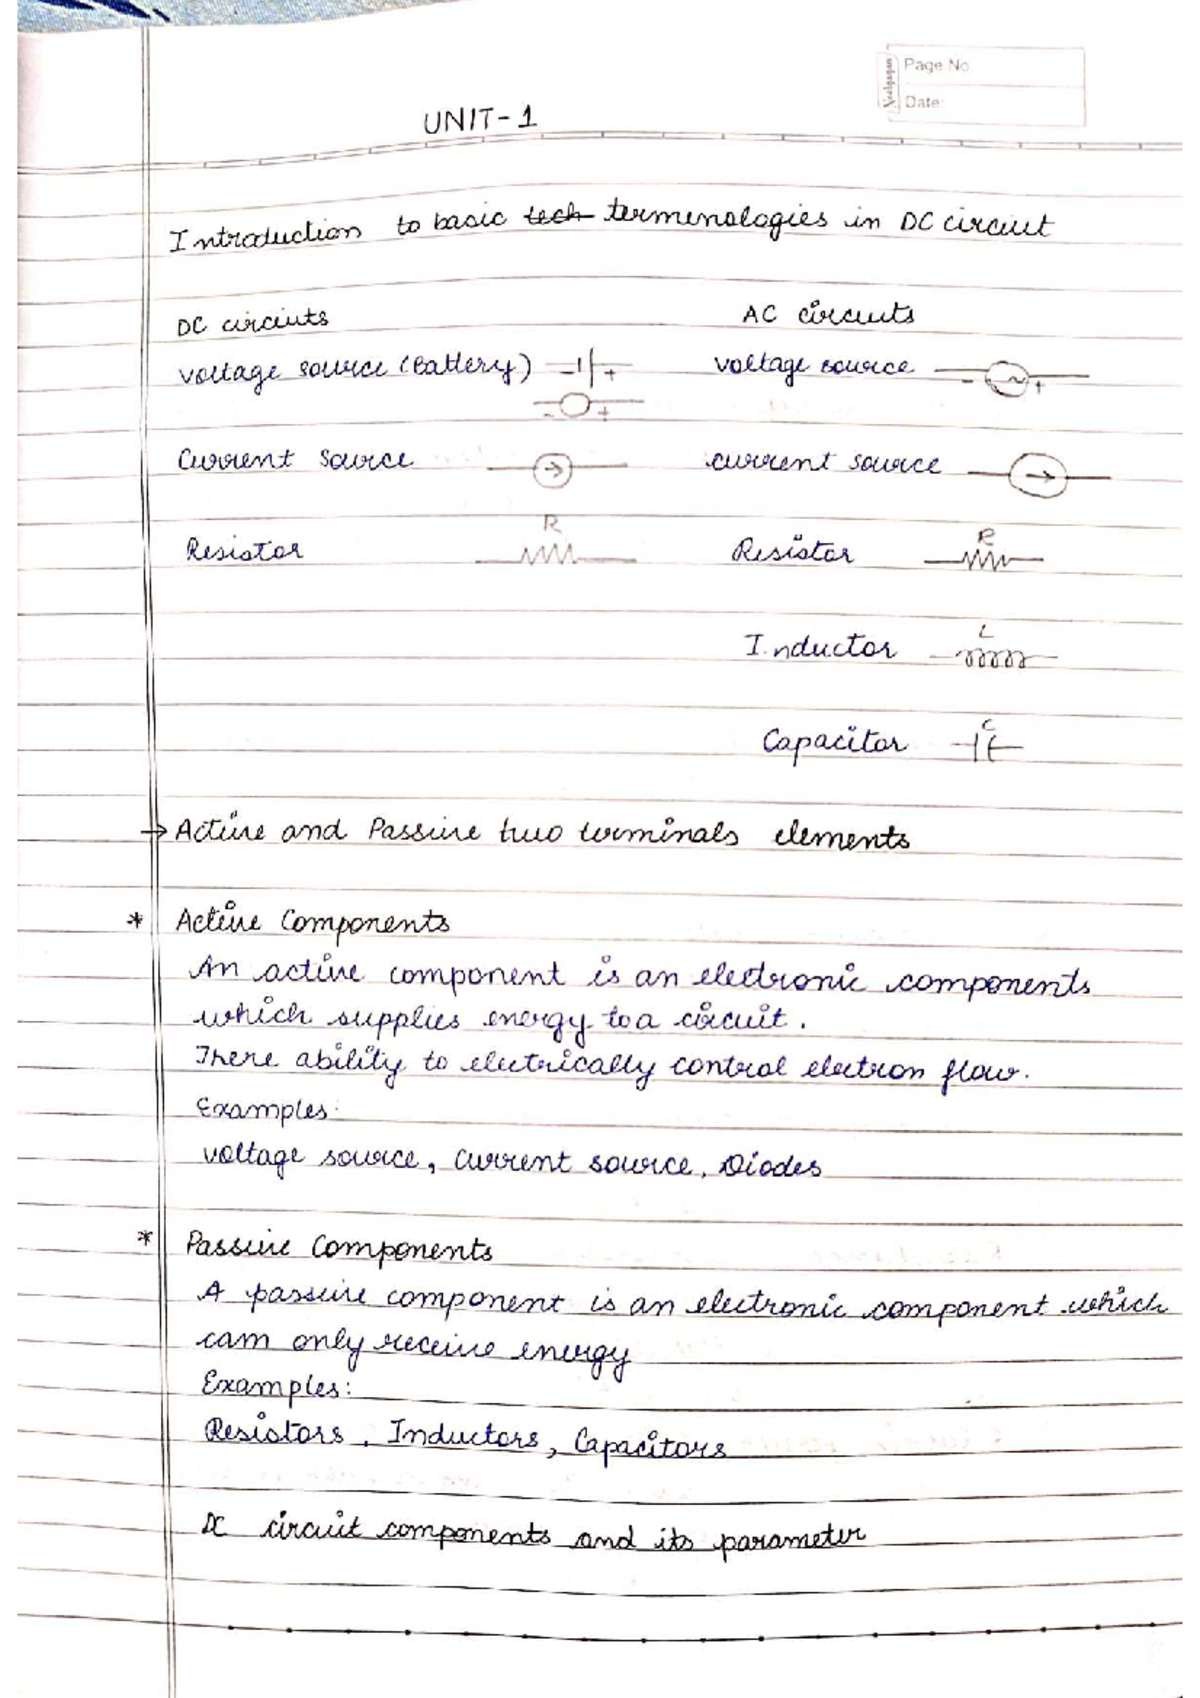 Neelgagan
Page No
Date:
UNIT-1
Introduction to basic tech termenologies in DC circuit
DC circiuts AC circuits
voltage source (Battery) - + voltage source - ~ +
- +
Current Source current source
Resistor R Resistor R
Inductor L
Capacitor C
→ Active and Passive two terminals elements
* Active Components
An active component is an electronic components
which supplies energy to a circuit.
There ability to electrically control electron flow.
Examples:
voltage source, current source, Diodes
* Passive Components
A passive component is an electronic component which
cam only receive energy
Examples:
Resistors, Inductors, Capacitors
DC circuit components and its parameter